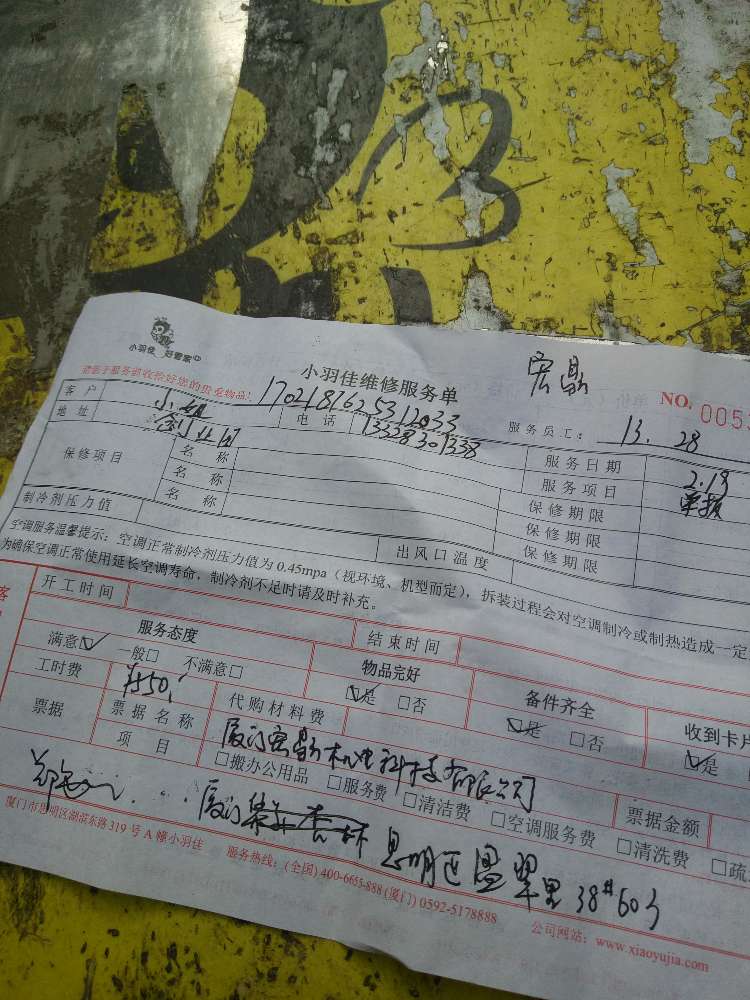 3
小羽佳 好管家
宏鼎
小羽佳维修服务单
NO. 0053
请您于服务前收拾好您的贵重物品: 1702181625312033
服务员工: 13. 28
客户 小姐 电话 13338301338 服务日期 2.13
地址 创业园 服务项目 单报
保修项目 名称 保修期限
名称 保修期限
名称 保修期限
制冷剂压力值 出风口温度
空调服务温馨提示: 空调正常制冷剂压力值为 0.45mpa (视环境、机型而定), 拆装过程会对空调制冷或制热造成一定
为确保空调正常使用延长空调寿命, 制冷剂不足时请及时补充。
客
开工时间 结束时间
服务态度 物品完好 备件齐全 收到卡片
满意☑ 一般□ 不满意□ ☑是 □否 ☑是 □否 ☑是
工时费 ¥550. 代购材料费
票据 票据名称 厦门宏鼎机电科技有限公司 票据金额
项目 □搬办公用品 □服务费 □清洁费 □空调服务费 □清洗费 □疏
厦门 杏林 思明区 翠里 38# 603
厦门市思明区湖滨东路 319 号 A 幢小羽佳 服务热线: (全国) 400-6655-888 (厦门) 0592-5178888 公司网站: www.xiaoyujia.com